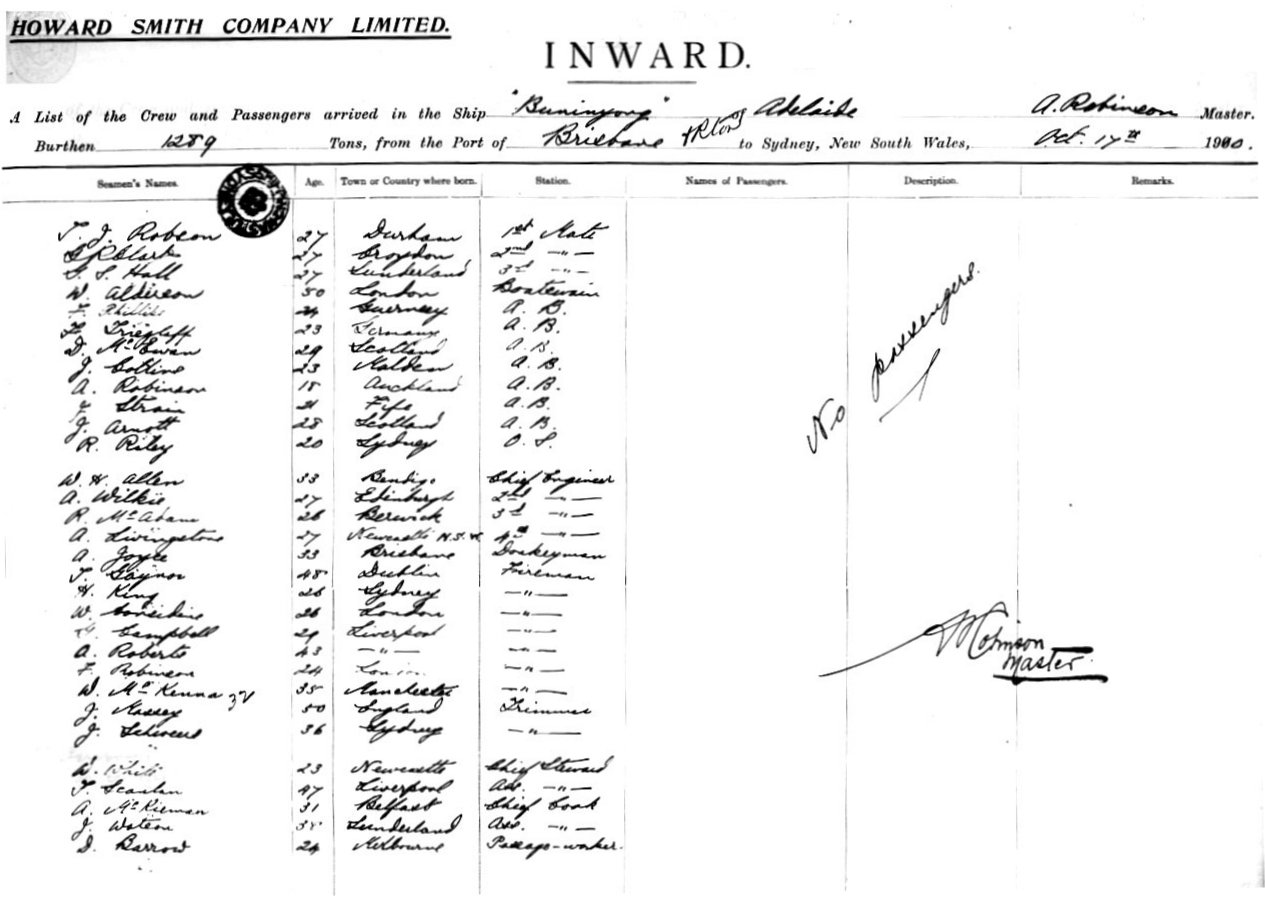 HOWARD SMITH COMPANY LIMITED.
INWARD.
A List of the Crew and Passengers arrived in the Ship "Buninyong" of Adelaide A. Robinson Master.
Burthen 1289 Tons, from the Port of Brisbane to Sydney, New South Wales, Oct. 17th 1900.
Seamen's Names. Age. Town or Country where born. Station. Names of Passengers. Description. Remarks.
T. J. Robson 27 Durham 1st Mate
G R Clark 27 Croydon 2nd -"-
G. S. Hall 27 Sunderland 3rd -"-
W. Alderson 50 London Boatswain
F. Phillips 24 Guernsey A. B.
23 Germany A. B.
D. McEwan 29 Scotland A. B.
J. Collins 23 Maldon A. B.
A. Robinson 18 Auckland A. B.
J. Strain 21 Fife A. B.
J. Arnott 28 Scotland A. B.
R. Riley 20 Sydney O. S.
No passengers.
W. H. Allen 33 Bendigo Chief Engineer
A. Wilkie 27 Edinburgh 2nd -"-
R. McAdam 26 Berwick 3rd -"-
A. Livingstone 27 Newcastle N.S.W. 4th -"-
A. Joyce 33 Brisbane Donkeyman
T. Gaynor 48 Dublin Fireman
H. King 26 Sydney -"-
W. Considine 26 London -"-
Campbell 29 Liverpool -"-
A. Roberts 43 -"- -"-
F. Robinson 24 London -"-
W. McKenna 35 Manchester -"-
J. Massey 50 England Trimmer
J. 36 Sydney -"-
Robinson
Master.
W. White 23 Newcastle Chief Steward
T. Scanlan 47 Liverpool Ass. -"-
A. McKiernan 31 Belfast Chief Cook
J. Watson 38 Sunderland Ass. -"-
D. Barrow 24 Melbourne Passage-worker.